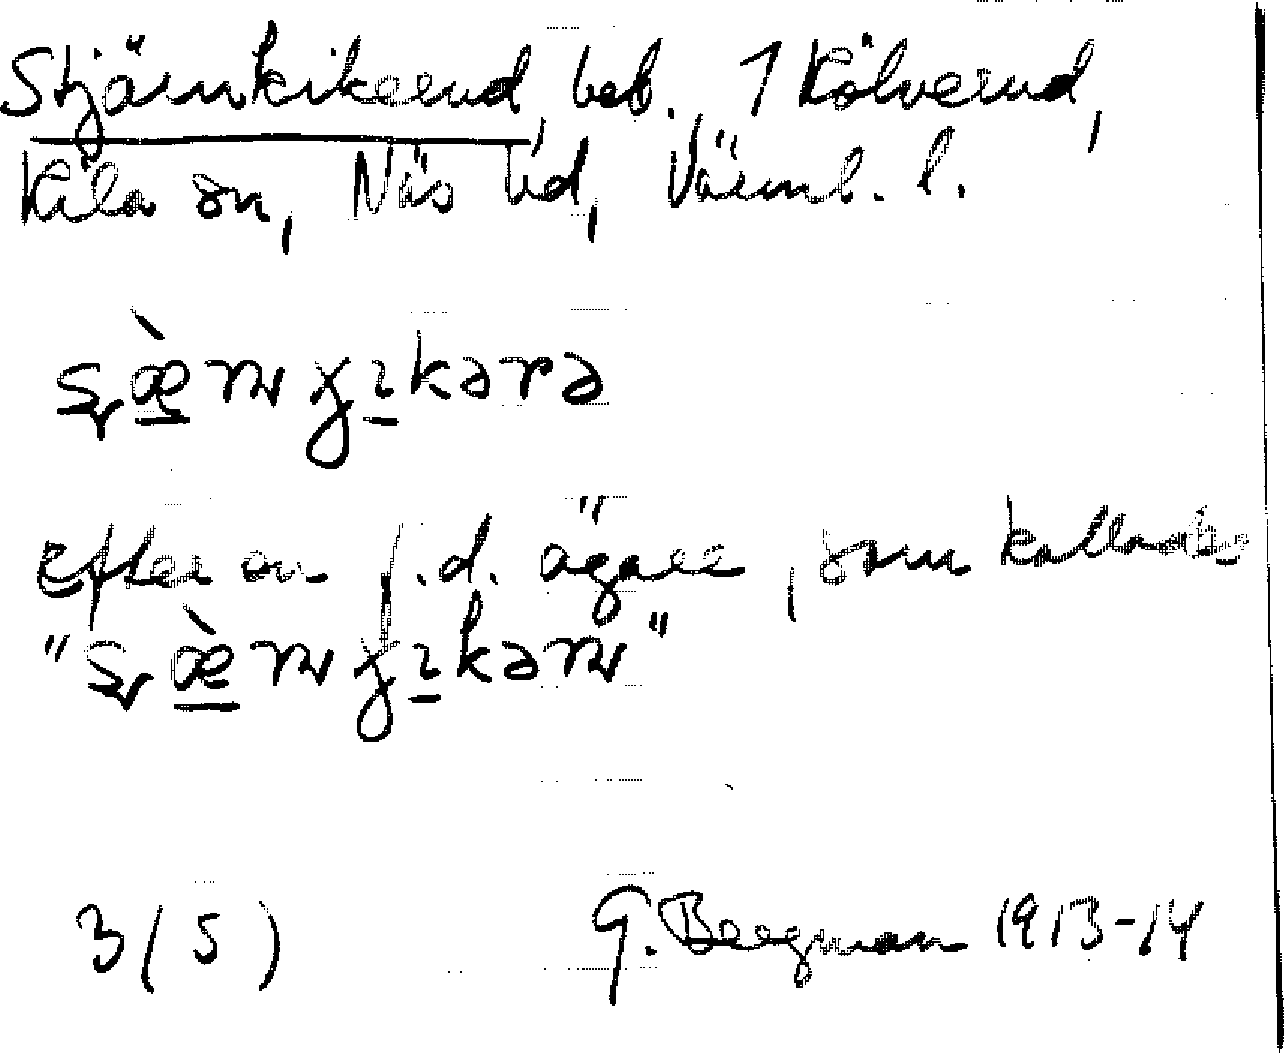 Stjärnkikerud, beb. 1 Kölverud,
Kila sn, Näs hd, Värml. l.
kərə
Efter en f.d. ägare, som kallades
3 (5) G. Bergman 1913-14